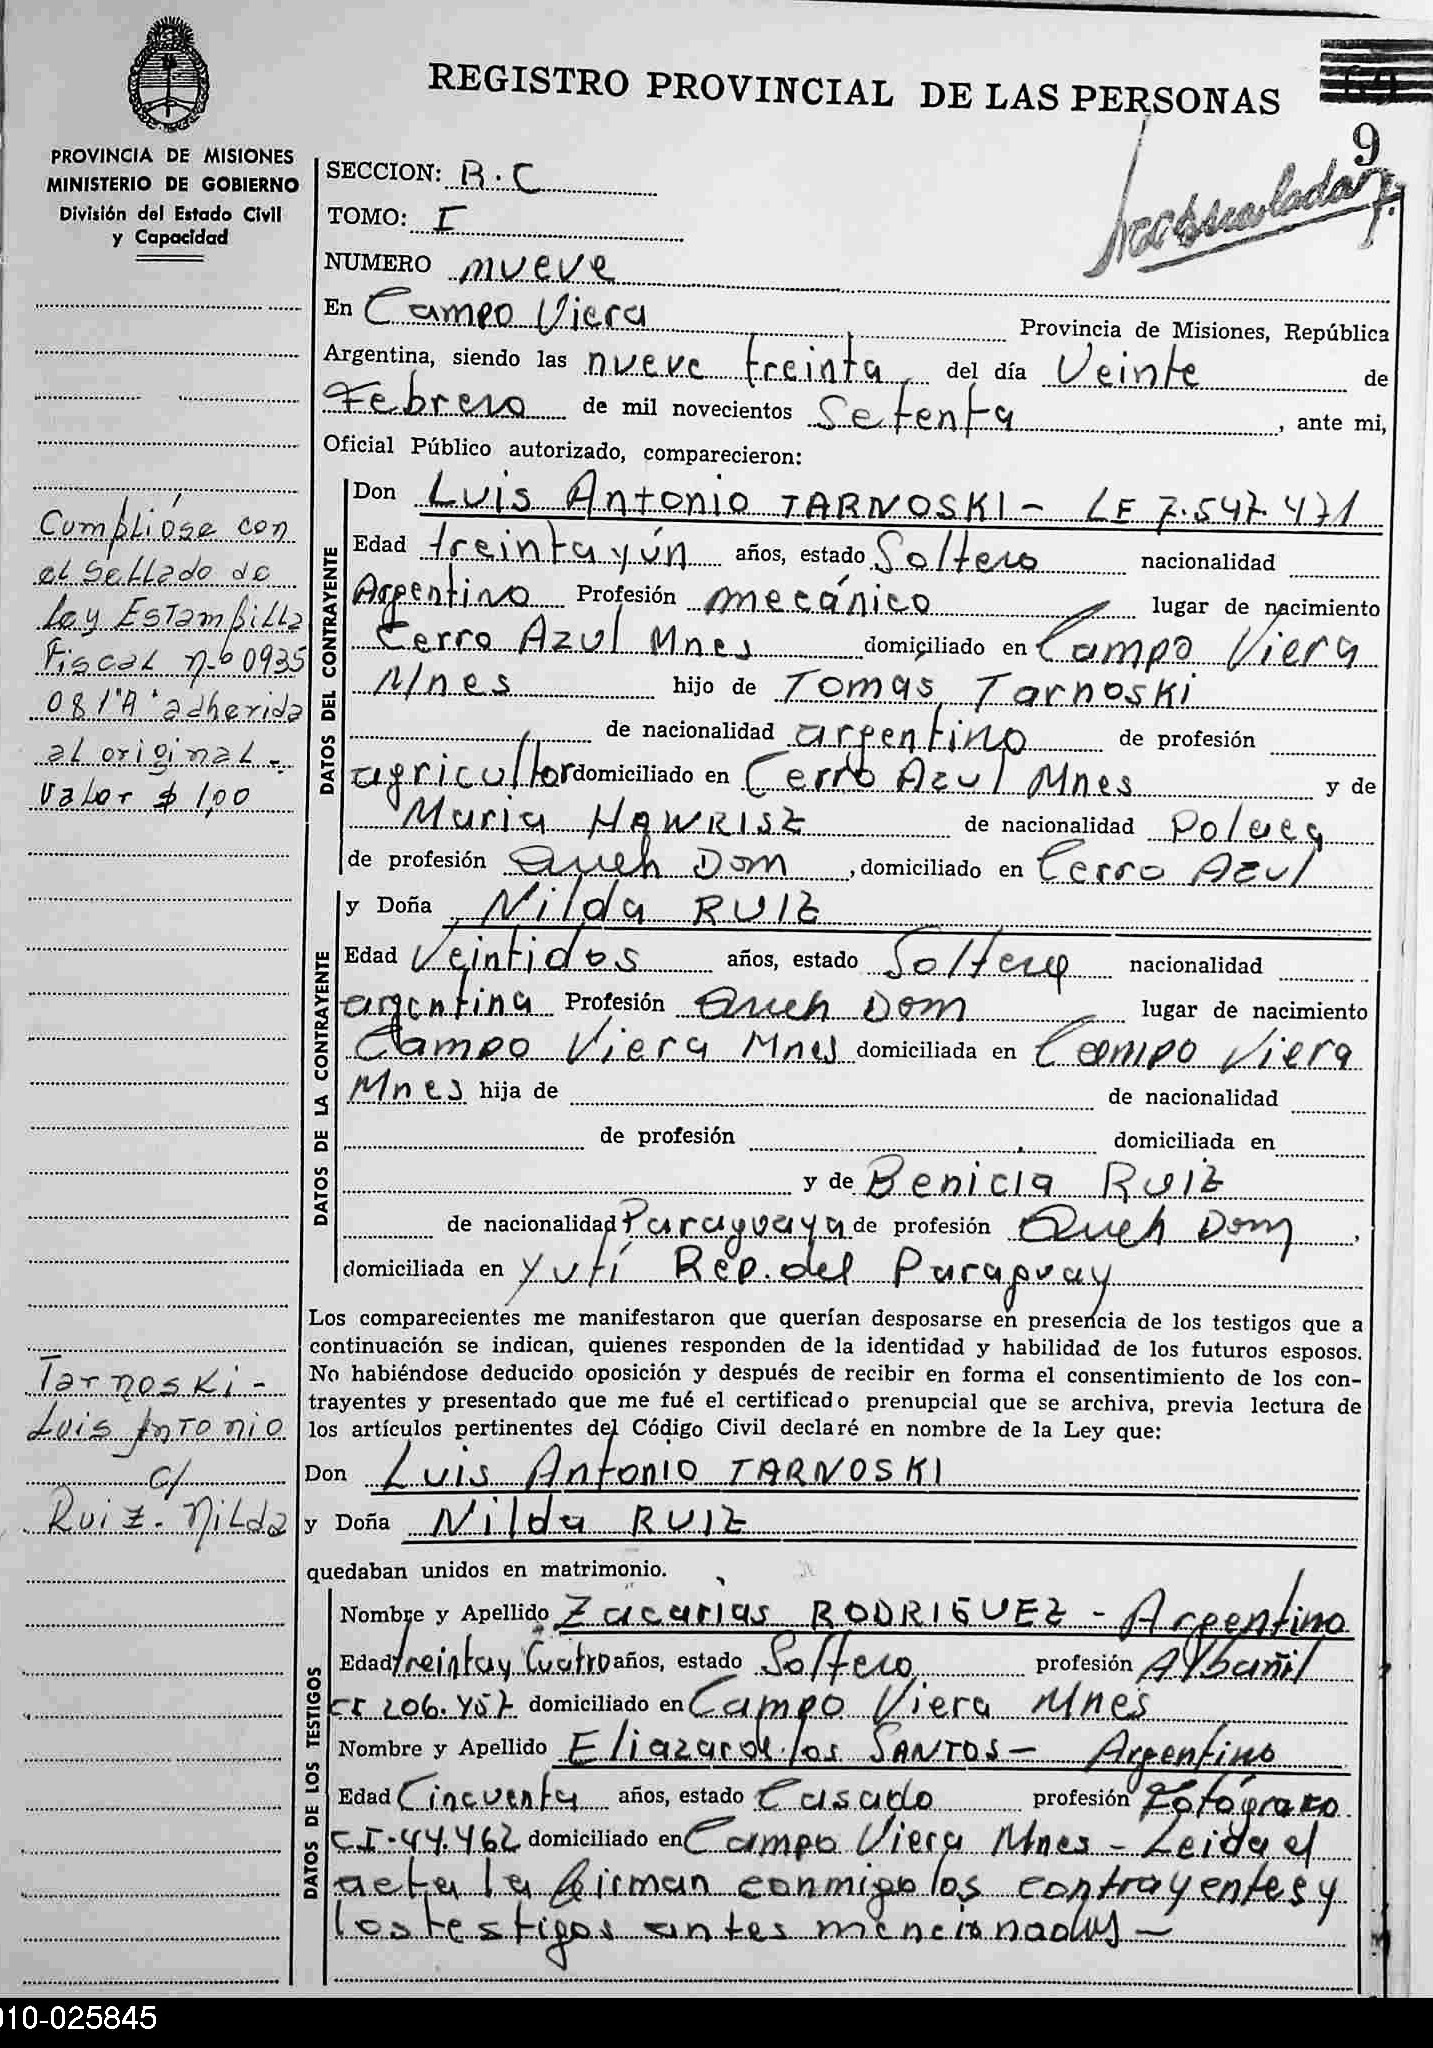 REGISTRO PROVINCIAL DE LAS PERSONAS
9
PROVINCIA DE MISIONES
MINISTERIO DE GOBIERNO
División del Estado Civil
y Capacidad
SECCION: R.C
TOMO: I
NUMERO nueve
En Campo Viera Provincia de Misiones, República
Argentina, siendo las nueve treinta del día Veinte de
Febrero de mil novecientos Setenta, ante mi,
Oficial Público autorizado, comparecieron:
DATOS DEL CONTRAYENTE
Don Luis Antonio TARNOSKI - LE 7.547.471
Edad treinta y ún años, estado Soltero nacionalidad
Argentino Profesión mecánico lugar de nacimiento
Cerro Azul Mnes domiciliado en Campo Viera
Mnes hijo de Tomas Tarnoski
de nacionalidad argentino de profesión
agricultor domiciliado en Cerro Azul Mnes y de
Maria HAWRISZ de nacionalidad Polaca
de profesión Queh Dom, domiciliado en Cerro Azul
DATOS DE LA CONTRAYENTE
y Doña Nilda RUIZ
Edad Veintidos años, estado Soltera nacionalidad
argentina Profesión Queh Dom lugar de nacimiento
Campo Viera Mnes domiciliada en Campo Viera
Mnes hija de de nacionalidad
de profesión domiciliada en
y de Benicia Ruiz
de nacionalidad Paraguaya de profesión Queh Dom,
domiciliada en Yutí Rep. del Paraguay
Los comparecientes me manifestaron que querían desposarse en presencia de los testigos que a
continuación se indican, quienes responden de la identidad y habilidad de los futuros esposos.
No habiéndose deducido oposición y después de recibir en forma el consentimiento de los con-
trayentes y presentado que me fué el certificado prenupcial que se archiva, previa lectura de
los artículos pertinentes del Código Civil declaré en nombre de la Ley que:
Don Luis Antonio TARNOSKI
y Doña Nilda RUIZ
quedaban unidos en matrimonio.
DATOS DE LOS TESTIGOS
Nombre y Apellido Zacarias RODRIGUEZ - Argentino
Edad treinta y Cuatro años, estado Soltero profesión Albañil
CI 206.457 domiciliado en Campo Viera Mnes
Nombre y Apellido Eliazar de los SANTOS - Argentino
Edad Cincuenta años, estado Casado profesión Fotógrafo
CI.44.462 domiciliado en Campo Viera Mnes - Leida el
acta la firman conmigo los contrayentes y
los testigos antes mencionados -
Cumplióse con
el Sellado de
Ley Estampilla
Fiscal nº 0935
081"A" adherida
al original -
Valor $ 1,00
Tarnoski -
Luis Antonio
c/
Ruiz. Nilda
010-025845